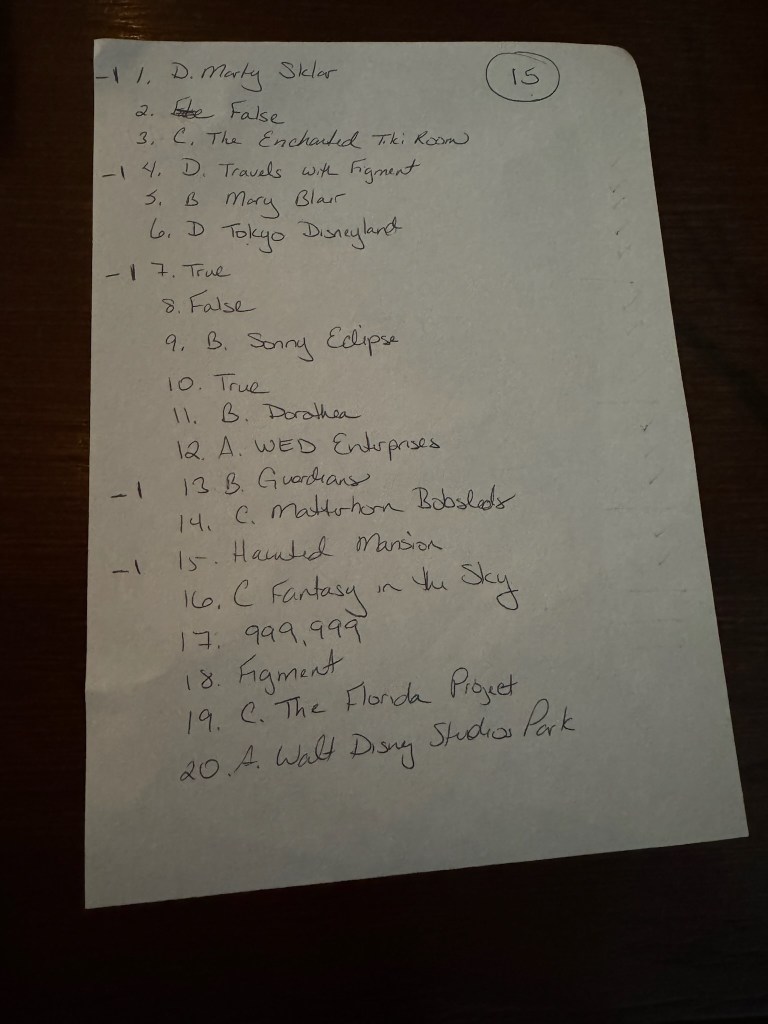 -1 1. D. Marty Sklar
15
2. False
3. C. The Enchanted Tiki Room
-1 4. D. Travels with Figment
5. B Mary Blair
6. D Tokyo Disneyland
-1 7. True
8. False
9. B. Sonny Eclipse
10. True
11. B. Dorothea
12. A. WED Enterprises
-1 13 B. Guardians
14. C. Matterhorn Bobsleds
-1 15. Haunted Mansion
16. C Fantasy in the Sky
17. 999,999
18. Figment
19. C. The Florida Project
20. A. Walt Disney Studios Park